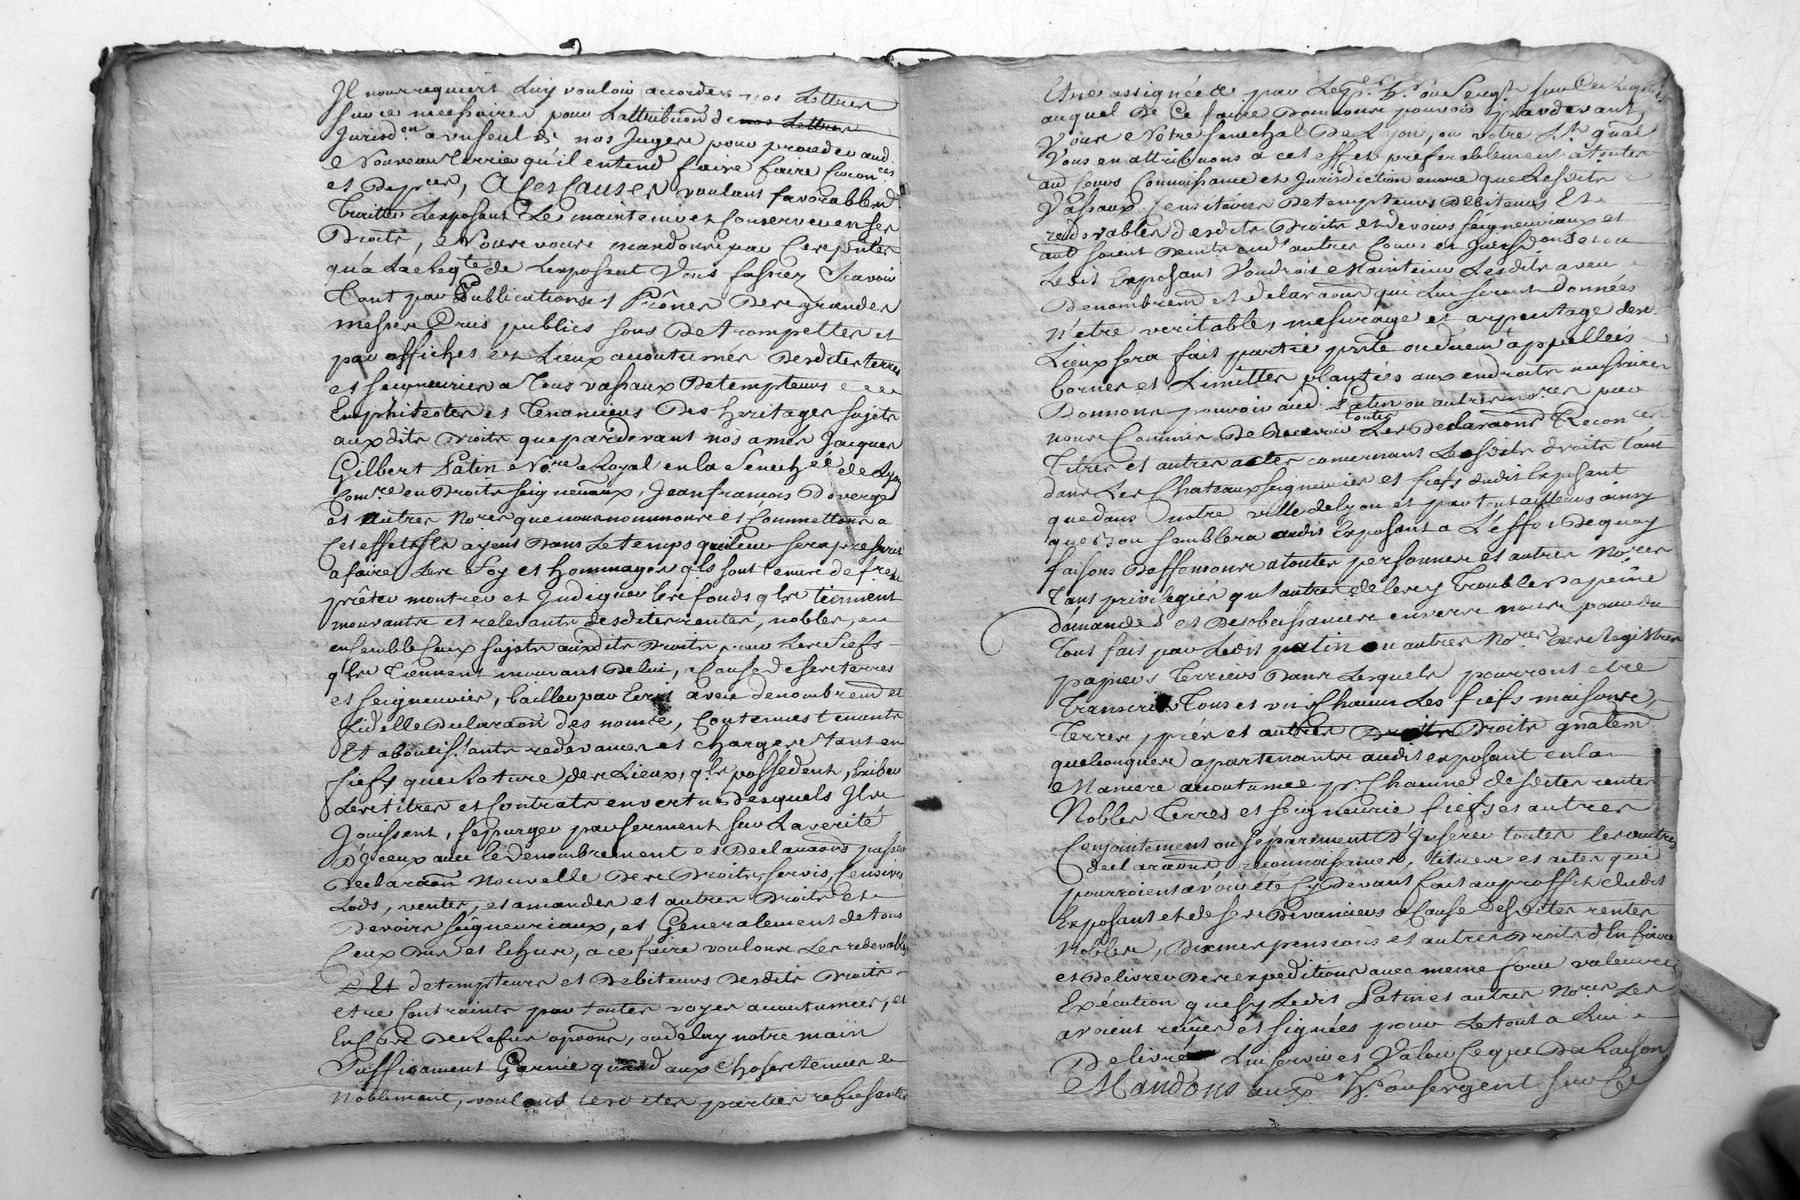 Il nous requiert luy vouloir accorder nos Lettres
sur ce necessaires pour Lattribuōn de nos Lettres
Jurid.on a un seul de nos Juges pour proceder aud.
Nouveau Terrier qu'il entend faire faire
A Ces Causes voulant favorablem.t
Traitter Lexposant Le maintenir et Conserver en ses
Droits, Nous vous mandons par Ces p̄ntes
qu'a La Reqte de Lexposant Vous fassiez Scavoir
Tant par Publications et Prônes Des grandes
messes Cris publics sons De trompettes et
par affiches es Lieux accoutumés Desdites terres
et seigneuries a Tous vassaux Detempteurs
Emphiteotes et Tenanciers Des heritages sujets
auxdits Droits que pardevant nos amés Jacques
Gilbert Patin No.re Royal en la Senechée de Lyon
Com.re en Droits seigneuriaux, Jean francois
et autres No.res que nous nommons et Commettons a
Cet effet Ils ayent Dans Le temps qui leur sera prescrit
a faire Les foy et hommages q.ls sont tenus de faire
prêter montrer et Indiquer les fonds q.ls tiennent
mouvants et relevants desdites rentes, nobles, en
ensemble Ceux sujets auxdits Droits pour Les fiefs
q.ls Tiennent mouvant De lui, a Cause de ses terres
et seigneuries, bailler par Ecrit aveu denombrem.t et
fidelle Declaraōn des noms, Contenues tenants
Et aboutissants redevances et charges tant en
fiefs que Roture, des Lieux, q.ls possedent, Exiber
Les titres et Contrats en vertu Desquels Ils
Jouissent, se purger par serment sur La verité
D'Iceux avec le Denombrement et Declaraōns passer
Declaraōn Nouvelle Des Droits, servis, Censives
Lods, ventes, et amandes et autres Droits et
Devoirs seigneuriaux, et Generalement de tous
Ceux Dus et Echus, a ce faire voulons Les redevables
Et detempteurs et Debiteurs Desdits Droits
etre Contraints par toutes voyes accoutumées, et
En Cas De Refus opōns, ou delay notre main
Suffisament Garnie quand aux Choses tenues
Noblement, voulons lesdites parties refusantes
Etre assignées par Le p.r h.r ou sergt sur Ce Requis
auquel De Ce faire Donnons pouvoir pardevant
Vous Notre Senechal De Lyon, ou votre Lt gñal
Vous en attribuons a cet effet preferablement a toutes
aud Cours Connoissance et Jurisdiction encore que Lesdits
Vassaux Censitaires Detempteurs Debiteurs Et
redevables desdits Droits et devoirs seigneuriaux et
Ledit Exposant Voudroit Maintenir Lesdits aveu
Denombrem.t et declaraōns qui Lui seront données
N'etre veritables, mesurage et arpentage desd.
Lieux sera fait partie p̄nte ou duem.t appellées
bornes et Limittes plantées aux endroits necessaires
Donnons pouvoir aud. Patin ou autres no.res par
nous Commis De Recevoir toutes Les Declaraōns Recon.ces
Titres et autres actes concernant Lesdits droits tant
dans Les Chateaux seigneuries et fiefs dudit Exposant
que dans notre ville de Lyon et par tout ailleurs ainsy
que bon semblera audit Exposant a L'effet Dequoy
faisons Deffenses a toutes personnes et autres No.res
Tant privilegiés qu'autres de les y Troubler a peine
d'amandes et Desobeissances envers nous pour du
Tout fait par Ledit patin ou autres No.res des registres
papiers Terriers Dans Lesquels pourront etre
Transcrits Tous et un Chacun Les fiefs maisons,
Terres, prés et autres Droits Droits gñalem.t
quelconques apartenants audit exposant en la
Maniere accoutumée pr. Chacune desdites rentes
Nobles Terres et seigneurie fiefs et autres
Conjointement ou separement D'Inserer toutes les autres
declaraōns, reconnoissances, titres et actes qui
pourroient avoir été Cy Devant fait au proffit dudit
Exposant et de ses Devanciers a Cause desdites rentes
Nobles, Dixmes pensions et autres Droits
et Delivrer Des expeditions avec meme force valeur et
Exécution que sy Ledit Patin et autres No.res Les
avoient reçues et signées pour Le tout a Lui
Delivré Lui servir et Valoir Ce que De Raison
Mandons au p.r h.r ou sergent sur Ce